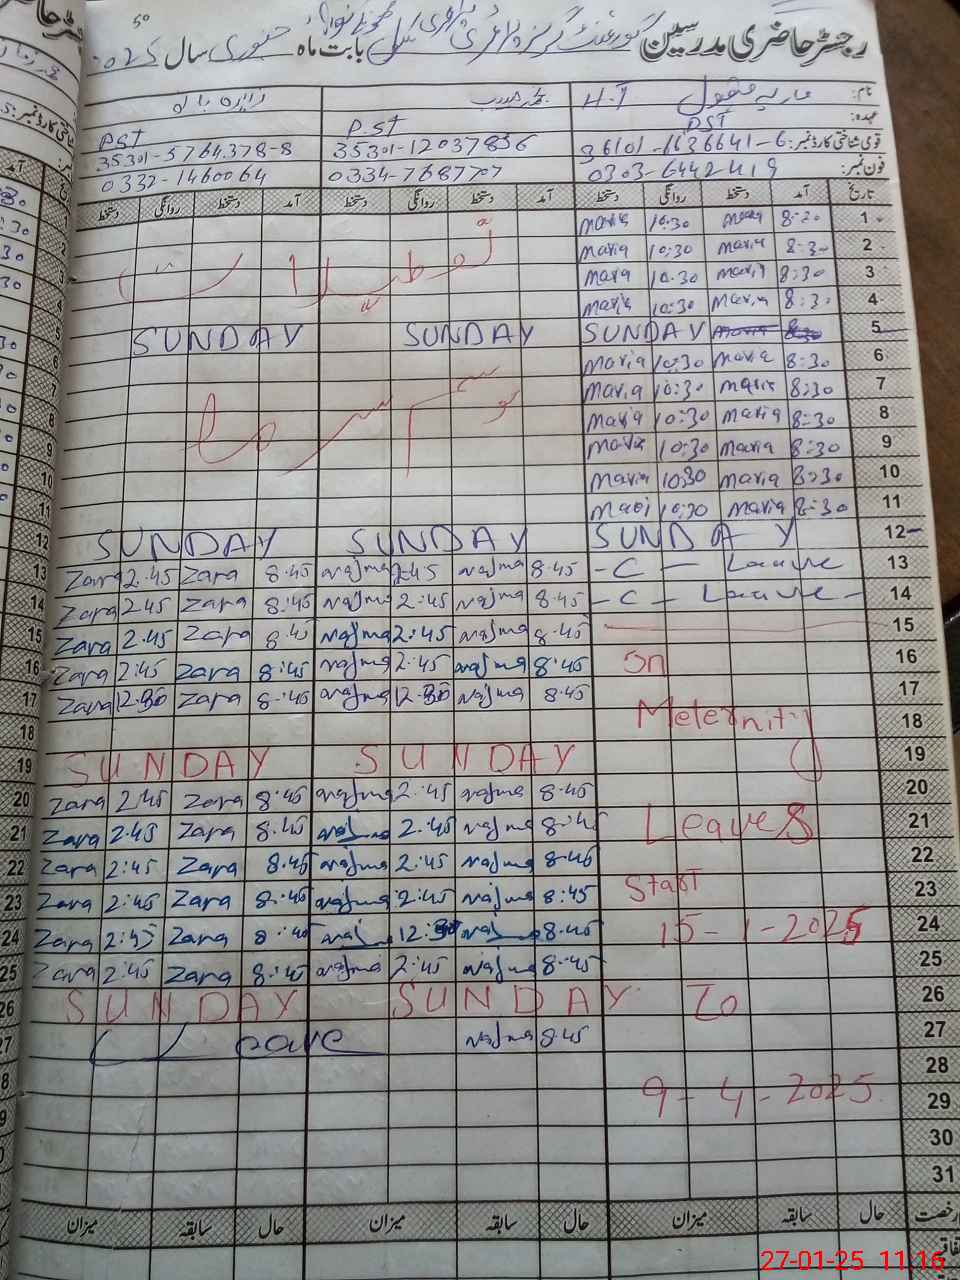 رجسٹر حاضری مدرسین گورنمنٹ گرلز پرائمری سکول بابت ماہ جنوری سال 2025
نام: ماریہ مقبول H.T
زاہدہ بانو
عہدہ: PST P.ST PST
قومی شناختی کارڈ نمبر: 36101-1636641-6 35301-12037836 35301-5764378-8
فون نمبر: 0303-6442419 0334-7687707 0332-1460064
تاریخ آمد دستخط روانگی دستخط آمد دستخط روانگی دستخط آمد دستخط روانگی دستخط
1 8:30 maria 10:30 maria
2 8:30 maria 10:30 maria
3 8:30 maria 10:30 maria
4 8:30 maria 10:30 maria
SUNDAY SUNDAY SUNDAY 5
6 8:30 maria 10:30 maria
7 8:30 maria 10:30 maria
8 8:30 maria 10:30 maria
9 8:30 maria 10:30 maria
10 8:30 maria 10:30 maria
11 8:30 maria 10:30
تعطیلات
موسم سرما
12 SUNDAY SUNDAY SUNDAY 12
13 Zara 2:45 Zara 8:45 najma 2:45 najma 8:45 -C- Leave 13
14 Zara 2:45 Zara 8:45 najma 2:45 najma 8:45 -C- Leave- 14
15 Zara 2:45 Zara 8:45 najma 2:45 najma 8:45 15
16 Zara 2:45 Zara 8:45 najma 2:45 najma 8:45 on 16
17 Zara 12:30 Zara 8:45 najma 12:30 najma 8:45 17
18 Meternity 18
19 SUNDAY SUNDAY 19
20 Zara 2:45 Zara 8:45 najma 2:45 najma 8:45 20
21 Zara 2:45 Zara 8:45 najma 2:45 najma 8:45 Leaves 21
22 Zara 2:45 Zara 8:45 najma 2:45 najma 8:45 22
23 Zara 2:45 Zara 8:45 najma 2:45 najma 8:45 Start 23
24 Zara 2:45 Zara 8:45 najma 12:30 najma 8:45 15-1-2025 24
25 Zara 2:45 Zara 8:45 najma 2:45 najma 8:45 25
26 SUNDAY SUNDAY To 26
27 Leave najma 8:45 27
28
9-4-2025 29
30
31
رخصت حال سابقہ میزان حال سابقہ میزان حال سابقہ میزان
27-01-25 11:16